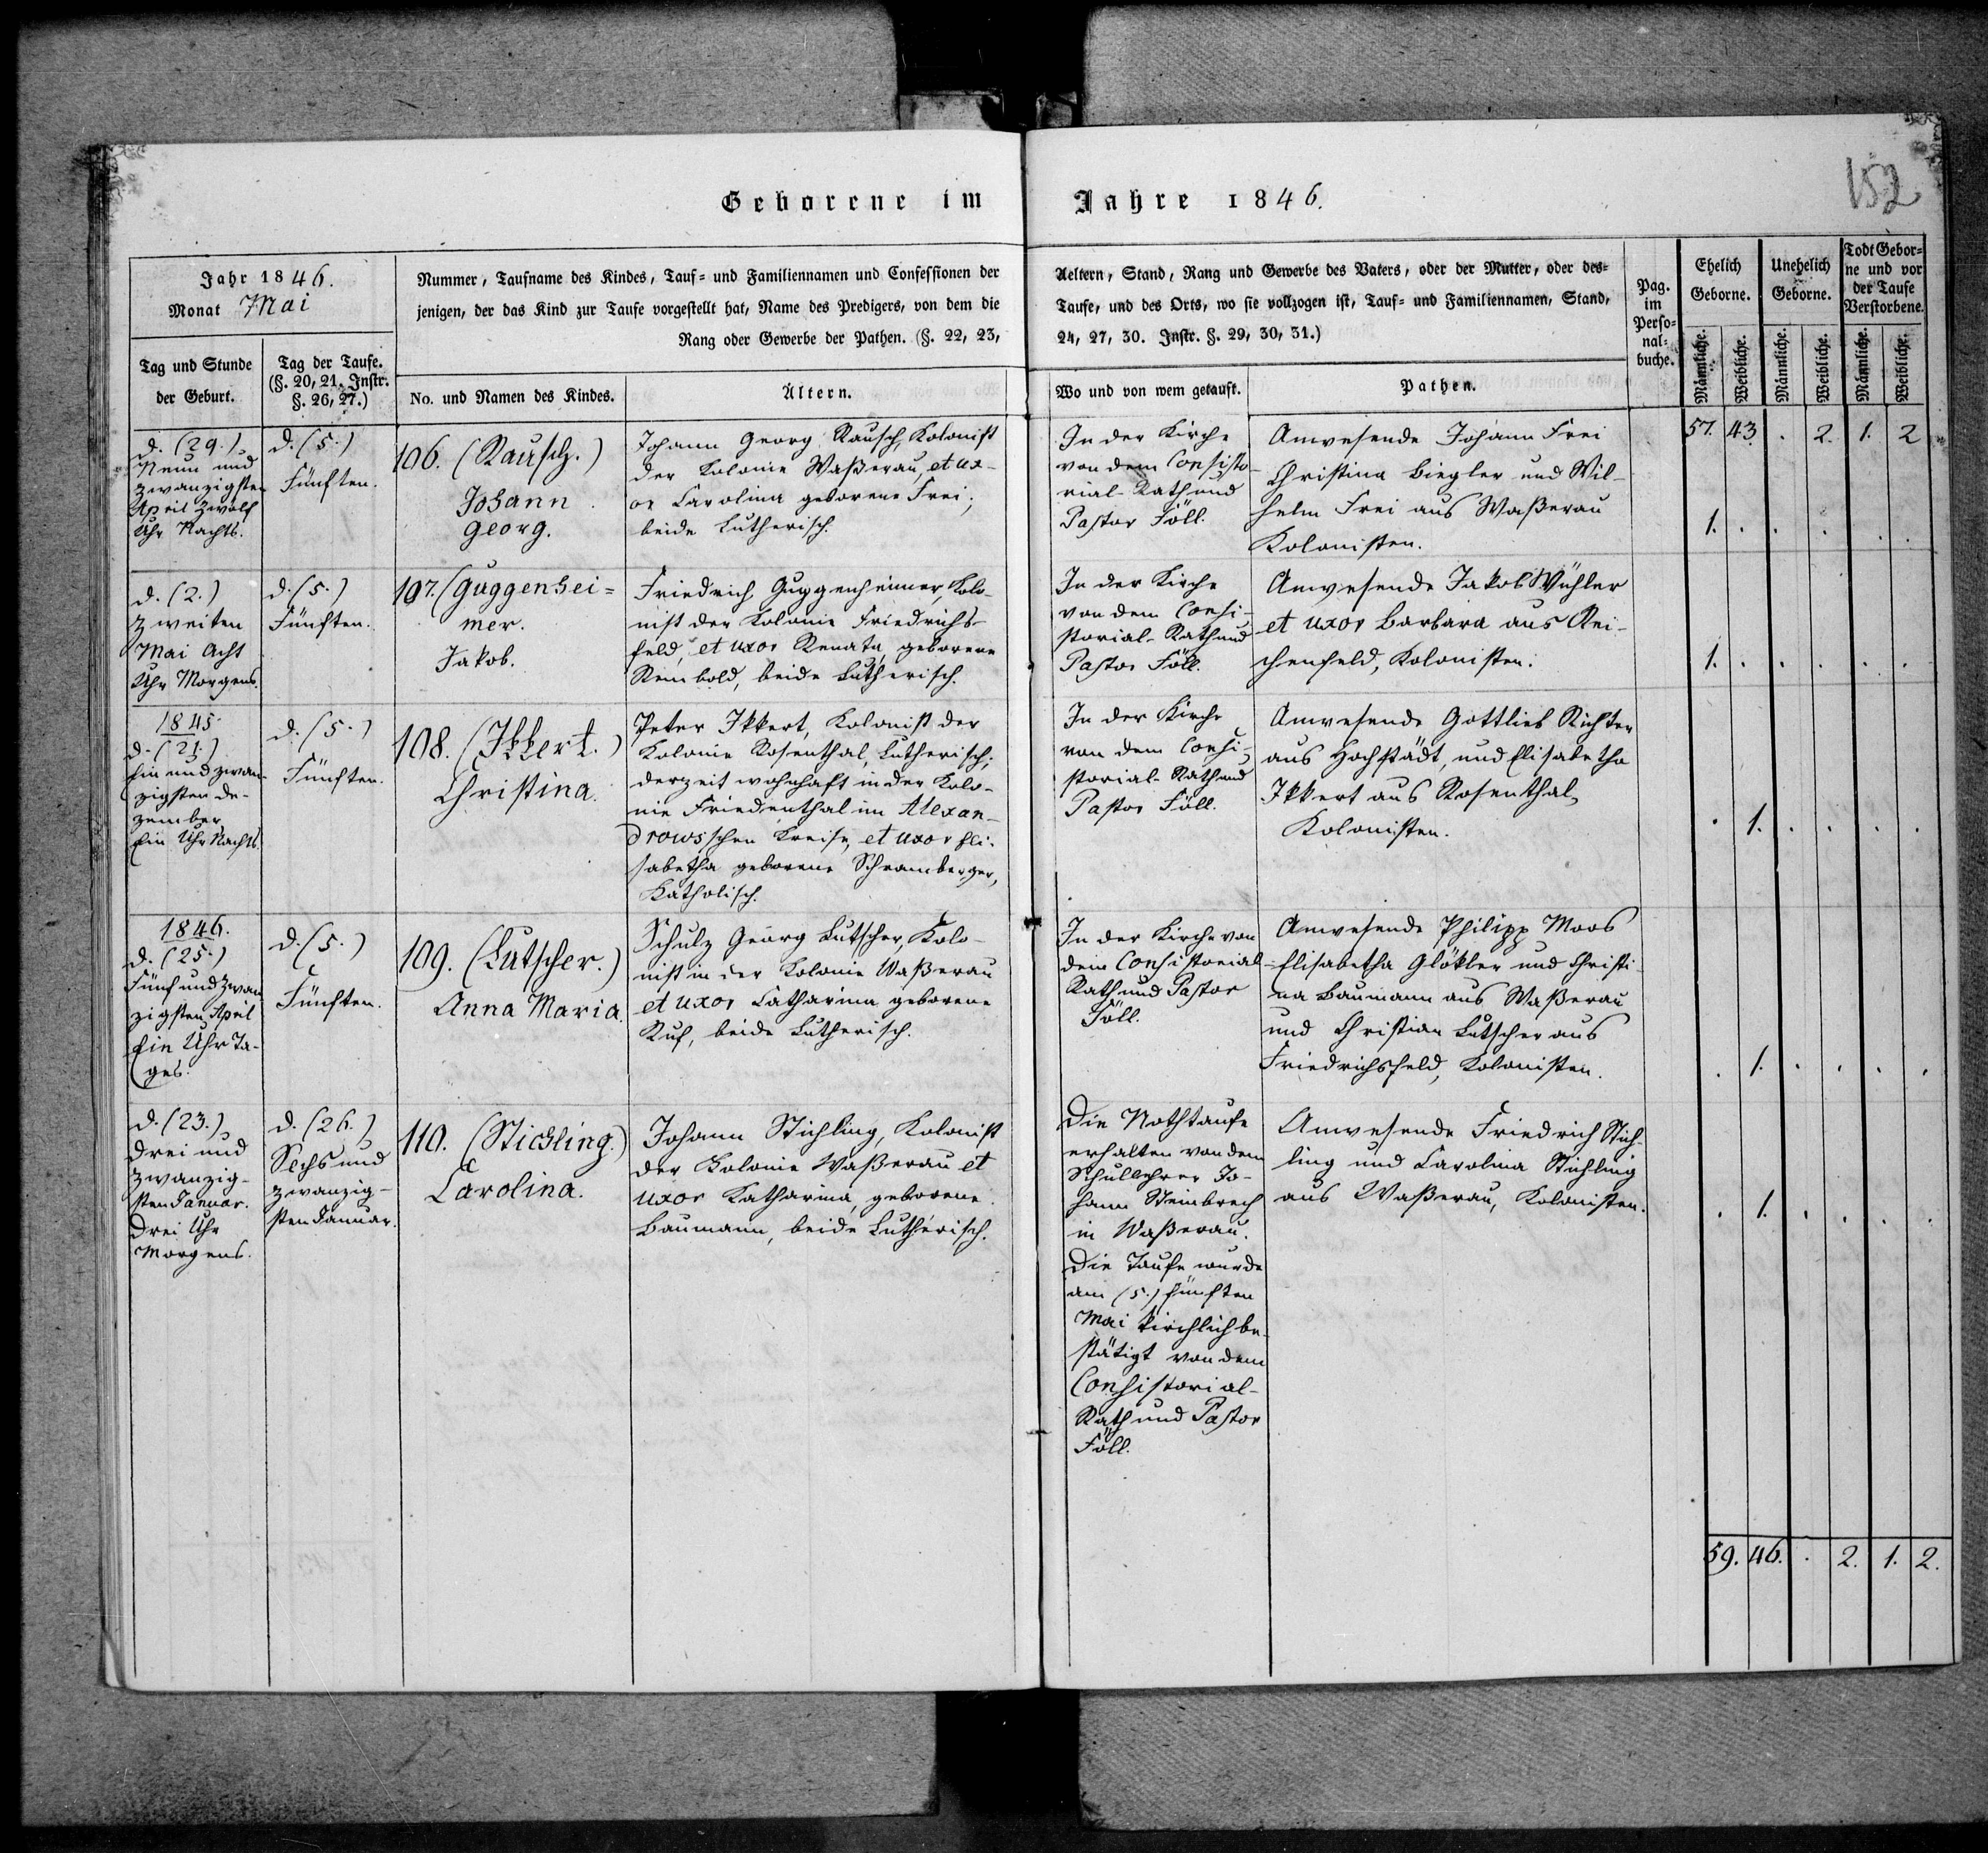 Geborene im Jahre 1846.
152
Jahr 1846.
Monat Mai
Nummer, Taufname des Kindes, Tauf= und Familiennamen und Confessionen der
jenigen, der das Kind zur Taufe vorgestellt hat, Name des Predigers, von dem die
Rang oder Gewerbe der Pathen. (§. 22, 23,
Tag und Stunde
der Geburt.
Tag der Taufe.
(§. 20, 21. Instr.
§. 26, 27.)
No. und Namen des Kindes.
Ältern.
Aeltern, Stand, Rang und Gewerbe des Vaters, oder der Mutter, oder des=
Taufe, und des Orts, wo sie vollzogen ist, Tauf= und Familiennamen, Stand,
24, 27, 30. Instr. §. 29, 30, 31.)
Wo und von wem getauft.
Pathen.
Pag.
im
Perso=
nal=
buche.
Ehelich
Geborne.
Unehelich
Geborne.
Todt Gebor=
ne und vor
der Taufe
Verstorbene.
Männliche.
Weibliche.
Männliche.
Weibliche.
Männliche.
Weibliche.
57. 43. . 2. 1. 2
d. (29.)
Neun und
zwanzigsten
April Zwölf
Uhr Nachts.
d. (5.)
Fünften.
106. (Rausch.)
Johann
Georg.
Johann Georg Rausch, Kolonist
der Kolonie Waßerau, et ux-
or Carolina geborene Frei;
beide Lutherisch.
In der Kirche
von dem Consisto-
rial-Rath und
Pastor Föll.
Anwesende Johann Frei
Christina Biegler und Wil-
helm Frei aus Waßerau
Kolonisten.
1. . . . . .
d. (2.)
Zweiten
Mai Acht
Uhr Morgens.
d. (5.)
Fünften.
107. (Guggenhei=
mer.
Jakob.
Friedrich Guggenheimer, Kolo-
nist der Kolonie Friedrichs-
feld, et uxor Renata, geborene
Reinbold, beide Lutherisch.
In der Kirche
von dem Consi-
storial-Rath und
Pastor Föll.
Anwesende Jakob Wühler
et uxor Barbara aus Rei-
chenfeld, Kolonisten.
1. . . . . .
1845.
d. (21.)
Ein und zwan-
zigsten De-
zember
Ein Uhr Nachts.
d. (5.)
Fünften.
108. (Ikkert.)
Christina.
Peter Ikkert, Kolonist der
Kolonie Rosenthal, Lutherisch;
derzeit wohnhaft in der Kolo-
nie Friedenthal im Alexan-
drowsschen Kreise, et uxor Eli-
sabetha geborene Schramberger,
Katholisch.
In der Kirche
von dem Consi-
storial-Rath und
Pastor Föll.
Anwesende Gottlieb Richter
aus Hochstädt, und Elisabetha
Ikkert aus Rosenthal,
Kolonisten.
. 1. . . . .
1846.
d. (25.)
Fünf und zwan
zigsten April
Ein Uhr Ta-
ges.
d. (5.)
Fünften.
109. (Lutscher.)
Anna Maria.
Schulz Georg Lutscher, Kolo-
nist in der Kolonie Waßerau
et uxor Catharina geborene
Ruf, beide Lutherisch.
In der Kirche von
dem Consistorial-
Rath und Pastor
Föll.
Anwesende Philipp Moos
Elisabetha Glökler und Christi-
na Baumann aus Waßerau
und Christian Lutscher aus
Friedrichsfeld, Kolonisten.
. 1. . . . .
d. (23.)
Drei und
zwanzig-
sten Januar.
Drei Uhr
Morgens.
d. (26.)
Sechs und
zwanzig-
sten Januar.
110. (Stichling.)
Carolina.
Johann Stichling, Kolonist
der Kolonie Waßerau et
uxor Katharina, geborene
Baumann, beide Lutherisch.
Die Nothtaufe
erhalten von dem
Schullehrer Jo-
hann Steinbrech
in Waßerau.
Die Taufe wurde
am (5.) fünften
Mai kirchlich be-
stätigt von dem
Consistorial-
Rath und Pastor
Föll.
Anwesende Friedrich Stich-
ling und Carolina Stichling
aus Waßerau, Kolonisten.
. 1. . . . .
59. 46. . 2. 1. 2.